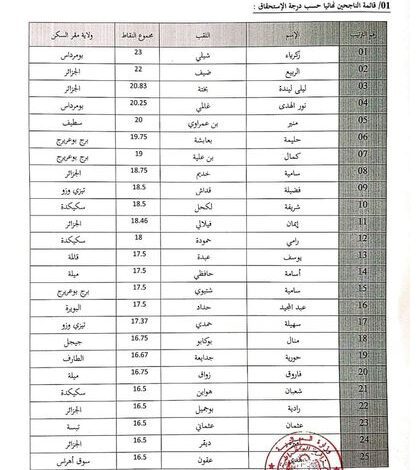 01/ قائمة الناجحين نهائيا حسب درجة الإستحقاق :
رقم الترتيب الإسم اللقب مجموع النقاط ولاية مقر السكن
01 زكرياء شبلي 23 بومرداس
02 الربيع ضيف 22 الجزائر
03 ليلى ليندة بختة 20.83 الجزائر
04 نور الهدى غالمي 20.25 بومرداس
05 منير بن عمراوي 20 سطيف
06 حليمة بعابشة 19.75 برج بوعريريج
07 كمال بن علية 19 برج بوعريريج
08 سامية خديم 18.75 الجزائر
09 فضيلة قداش 18.5 تيزي وزو
10 شريفة لكحل 18.5 سكيكدة
11 إيمان فيلالي 18.46 الجزائر
12 رامي حمودة 18 سكيكدة
13 يوسف عبدة 17.5 قالمة
14 أسامة حافظي 17.5 ميلة
15 سامية شتيوي 17.5 برج بوعريريج
16 عبد المجيد حداد 17.5 البويرة
17 سهيلة حمدي 17.37 تيزي وزو
18 منال بوكابو 16.75 جيجل
19 حورية جدايعة 16.67 الطارف
20 فاروق زواق 16.75 ميلة
21 شعبان هوابن 16.5 سكيكدة
22 رادية بوجميل 16.5 الجزائر
23 عثمان عثماني 16.5 تبسة
24 ديقر 16.5 الجزائر
25 عقون 16.5 سوق أهراس